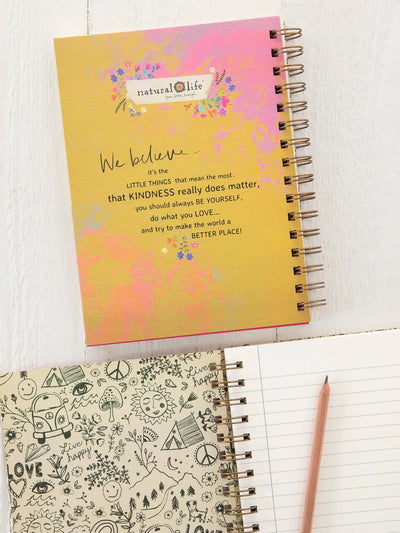 natural life
give love. laugh.
We believe...
it's the
LITTLE THINGS that mean the most.
that KINDNESS really does matter,
you should always BE YOURSELF,
do what you LOVE...
and try to make the world a
BETTER PLACE!
Live happy
Live happy
LOVE
Live happy
LOVE